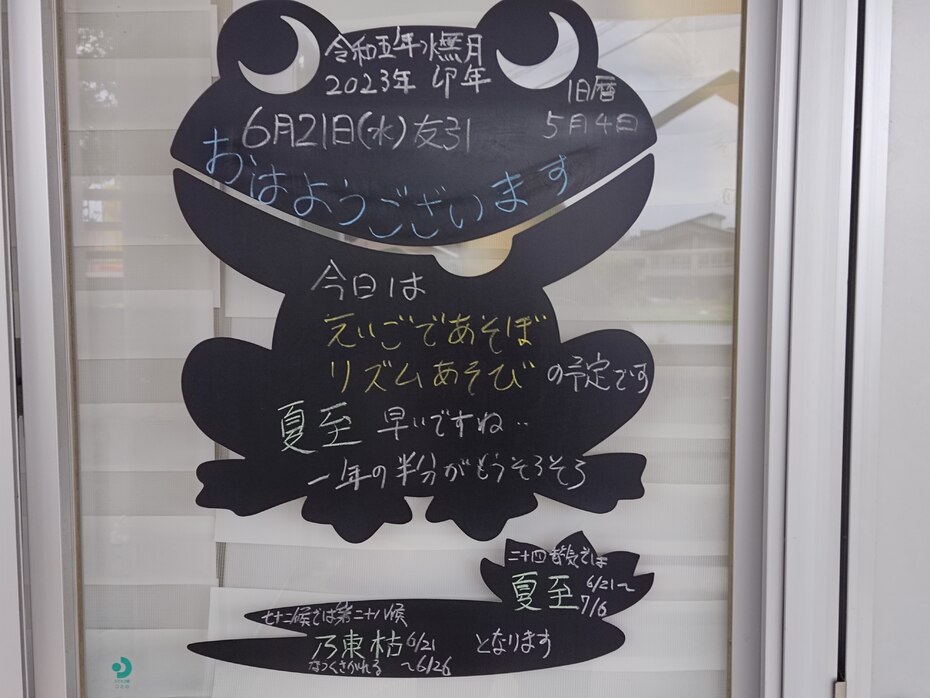 令和五年 水無月
2023年 卯年
旧暦
5月4日
6月21日(水)友引
おはようございます
今日は
えいごであそぼ
リズムあそび の予定です
夏至 早いですね‥
一年の半分がもうそろそろ
二十四節気では
夏至 6/21〜
7/6
七十二候では第二十八候
乃東枯 6/21 となります
なつくさかれる 〜6/26